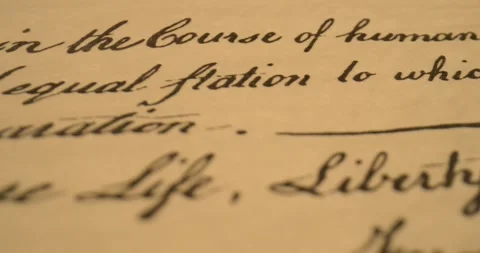 in the Course of human
equal station to whic
aration.
Life, Liberty